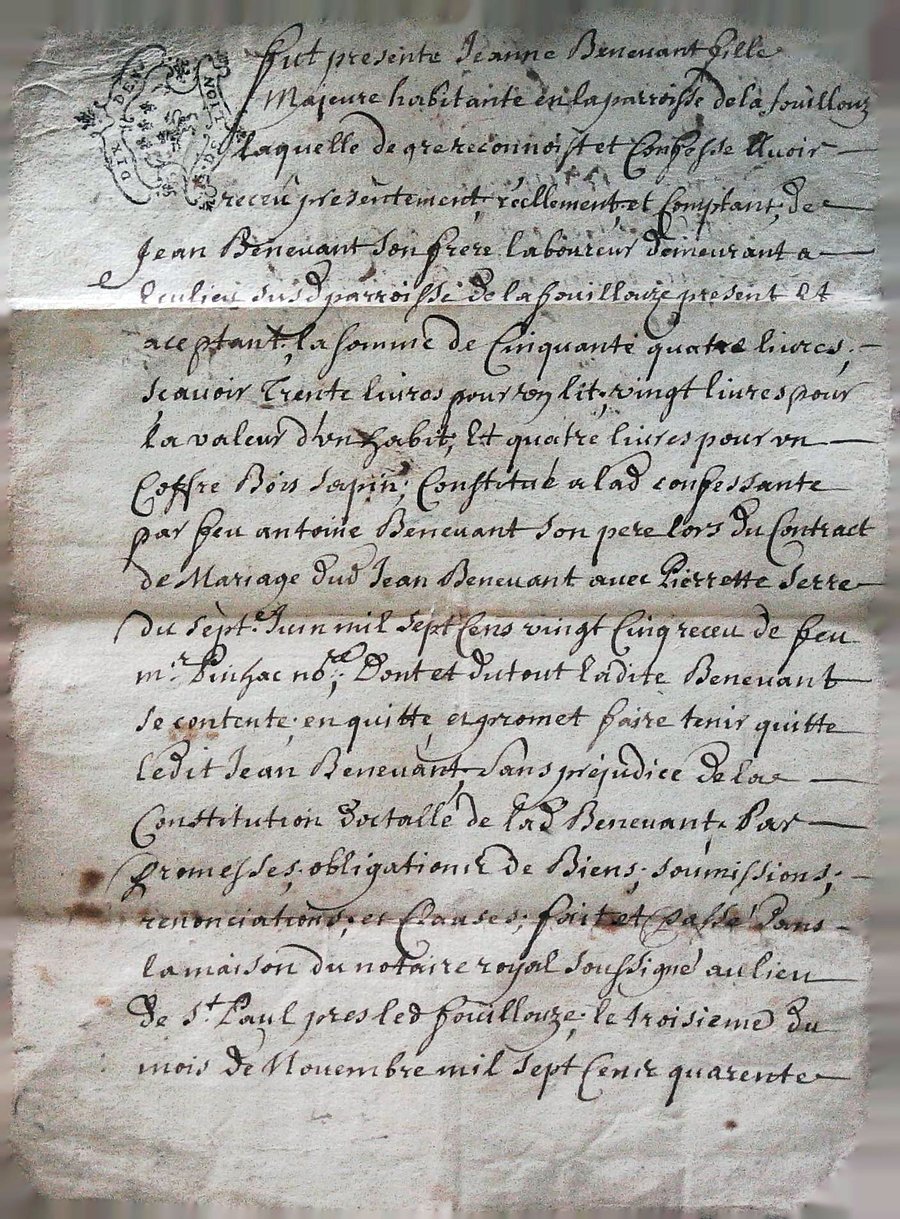 DIX DEN
NOIT
fut presente Jeanne Benevant fille
Majeure habitante en la parroisse de la fouillouz
laquelle de gre reconnoist et Confesse Avoir
receu presentement, réellement, et Comptant, de
Jean Benevant Son frere laboureur demeurant a
Eculieu susd parroisse de la fouillouze present Et
aceptant, la somme de Cinquante quatre livres,
Scavoir Trente livres pour un lit, vingt livres pour
la valeur d'un habit, Et quatre livres pour un
Coffre Bois Sapin; Constitué a lad confessante
par feu antoine Benevant Son pere lors du Contract
de Mariage dud Jean Benevant avec Pierrette Serre
du sept.e Juin mil Sept Cens vingt Cinq receu de feu
m.r nore; Dont et du tout Ladite Benevant
Se contente, en quitte, et promet faire tenir quitte
ledit Jean Benevant, Sans prejudice de la
Constitution de lad Benevant. Par
promesses, obligations de Biens, soumissions,
renonciations, et Clauses; fait et Passé Dans
la maison du notaire royal soussigné au lieu
de St. Paul pres led fouillouze, le troisieme du
mois de Novembre mil Sept Cens quarente